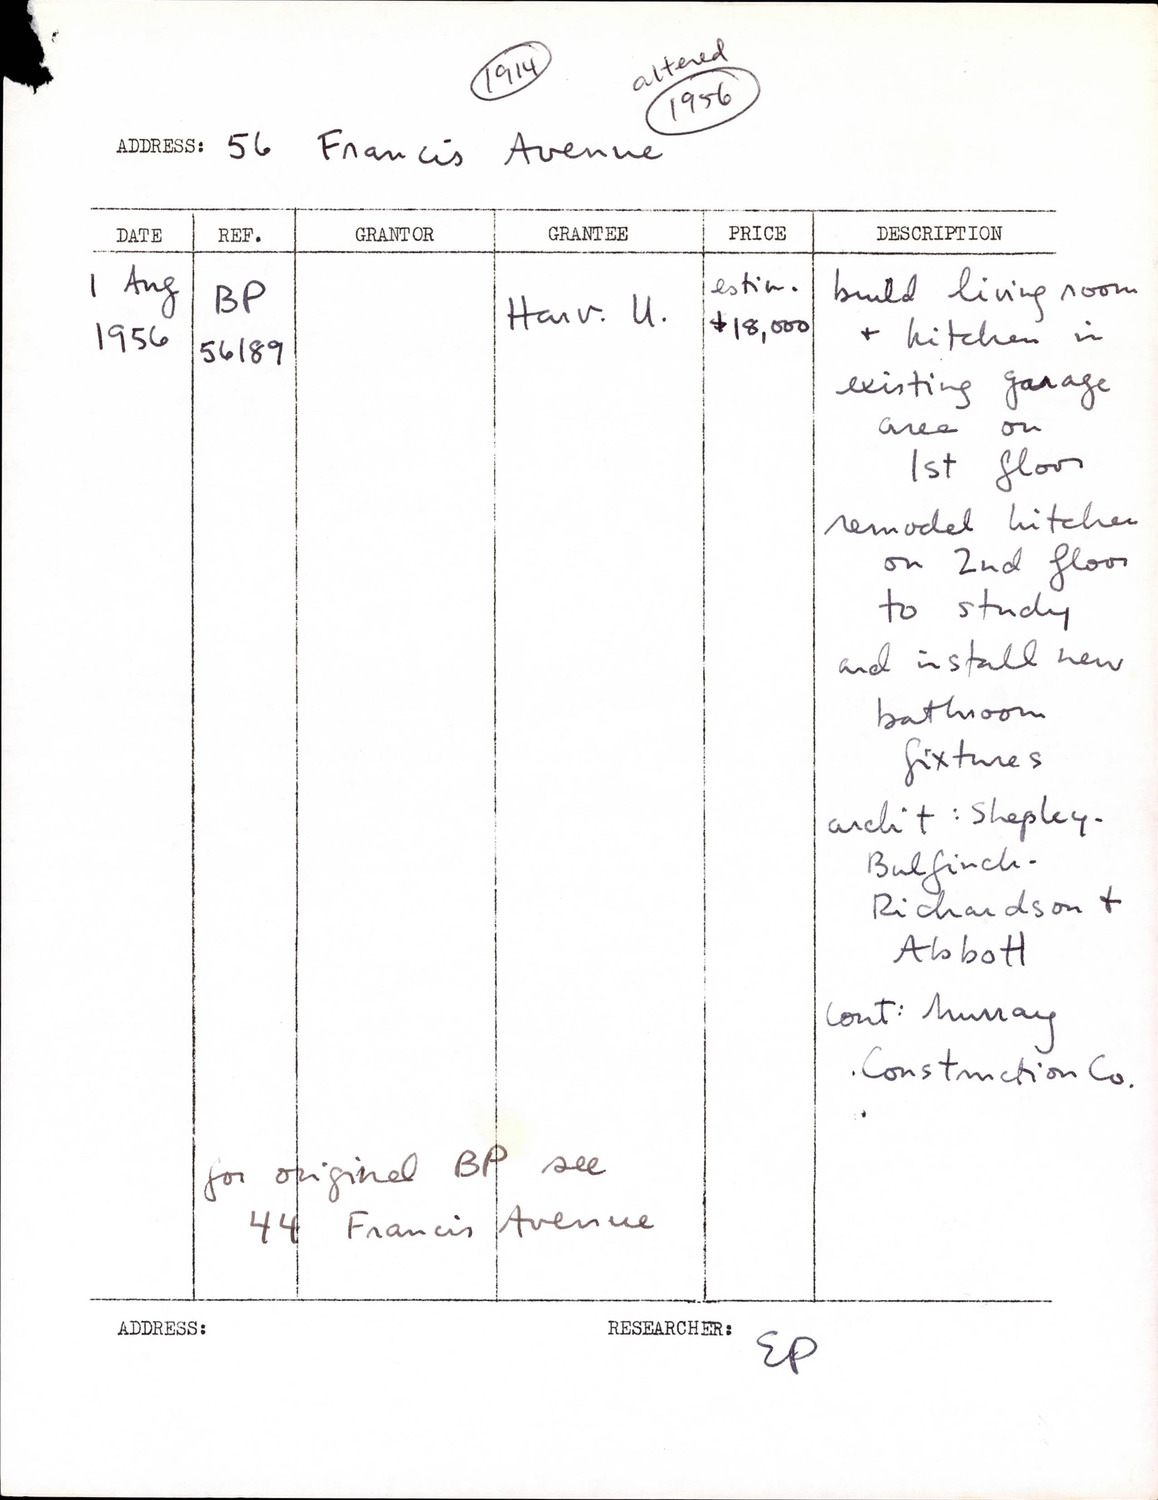 1914
altered
1956
ADDRESS: 56 Francis Avenue
DATE REF. GRANTOR GRANTEE PRICE DESCRIPTION
1 Aug
1956
BP
56189
Harv. U.
estim.
$18,000
build living room
+ kitchen in
existing garage
area on
1st floor
remodel kitchen
on 2nd floor
to study
and install new
bathroom
fixtures
archit: Shepley-
Bulfinch-
Richardson +
Abbott
cont: Murray
Construction Co.
for original BP see
44 Francis Avenue
ADDRESS:
RESEARCHER: EP